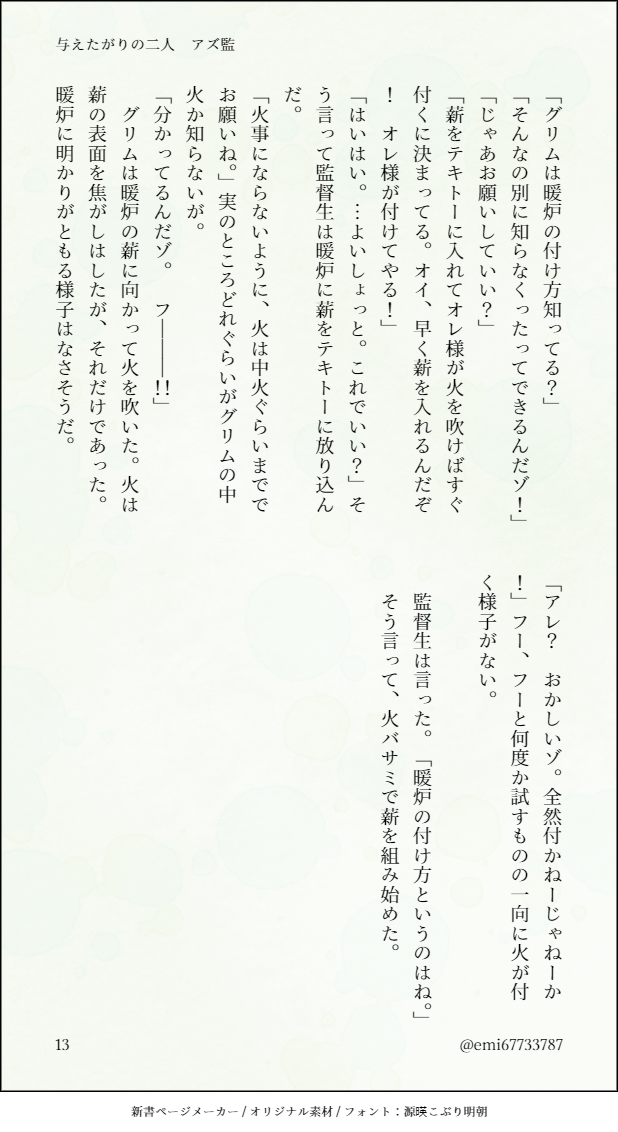 与えたがりの二人　アズ監
「グリムは暖炉の付け方知ってる？」
「そんなの別に知らなくったってできるんだゾ！」
「じゃあお願いしていい？」
「薪をテキトーに入れてオレ様が火を吹けばすぐ
付くに決まってる。オイ、早く薪を入れるんだぞ
！　オレ様が付けてやる！」
「はいはい。…よいしょっと。これでいい？」そ
う言って監督生は暖炉に薪をテキトーに放り込ん
だ。
「火事にならないように、火は中火ぐらいまでで
お願いね。」実のところどれぐらいがグリムの中
火か知らないが。
「分かってるんだゾ。　フ―――!!」
　グリムは暖炉の薪に向かって火を吹いた。火は
薪の表面を焦がしはしたが、それだけであった。
暖炉に明かりがともる様子はなさそうだ。
「アレ？　おかしいゾ。全然付かねーじゃねーか
！」フー、フーと何度か試すものの一向に火が付
く様子がない。
　監督生は言った。「暖炉の付け方というのはね。」
　そう言って、火バサミで薪を組み始めた。
13
@emi67733787
新書ページメーカー / オリジナル素材 / フォント：源暎こぶり明朝